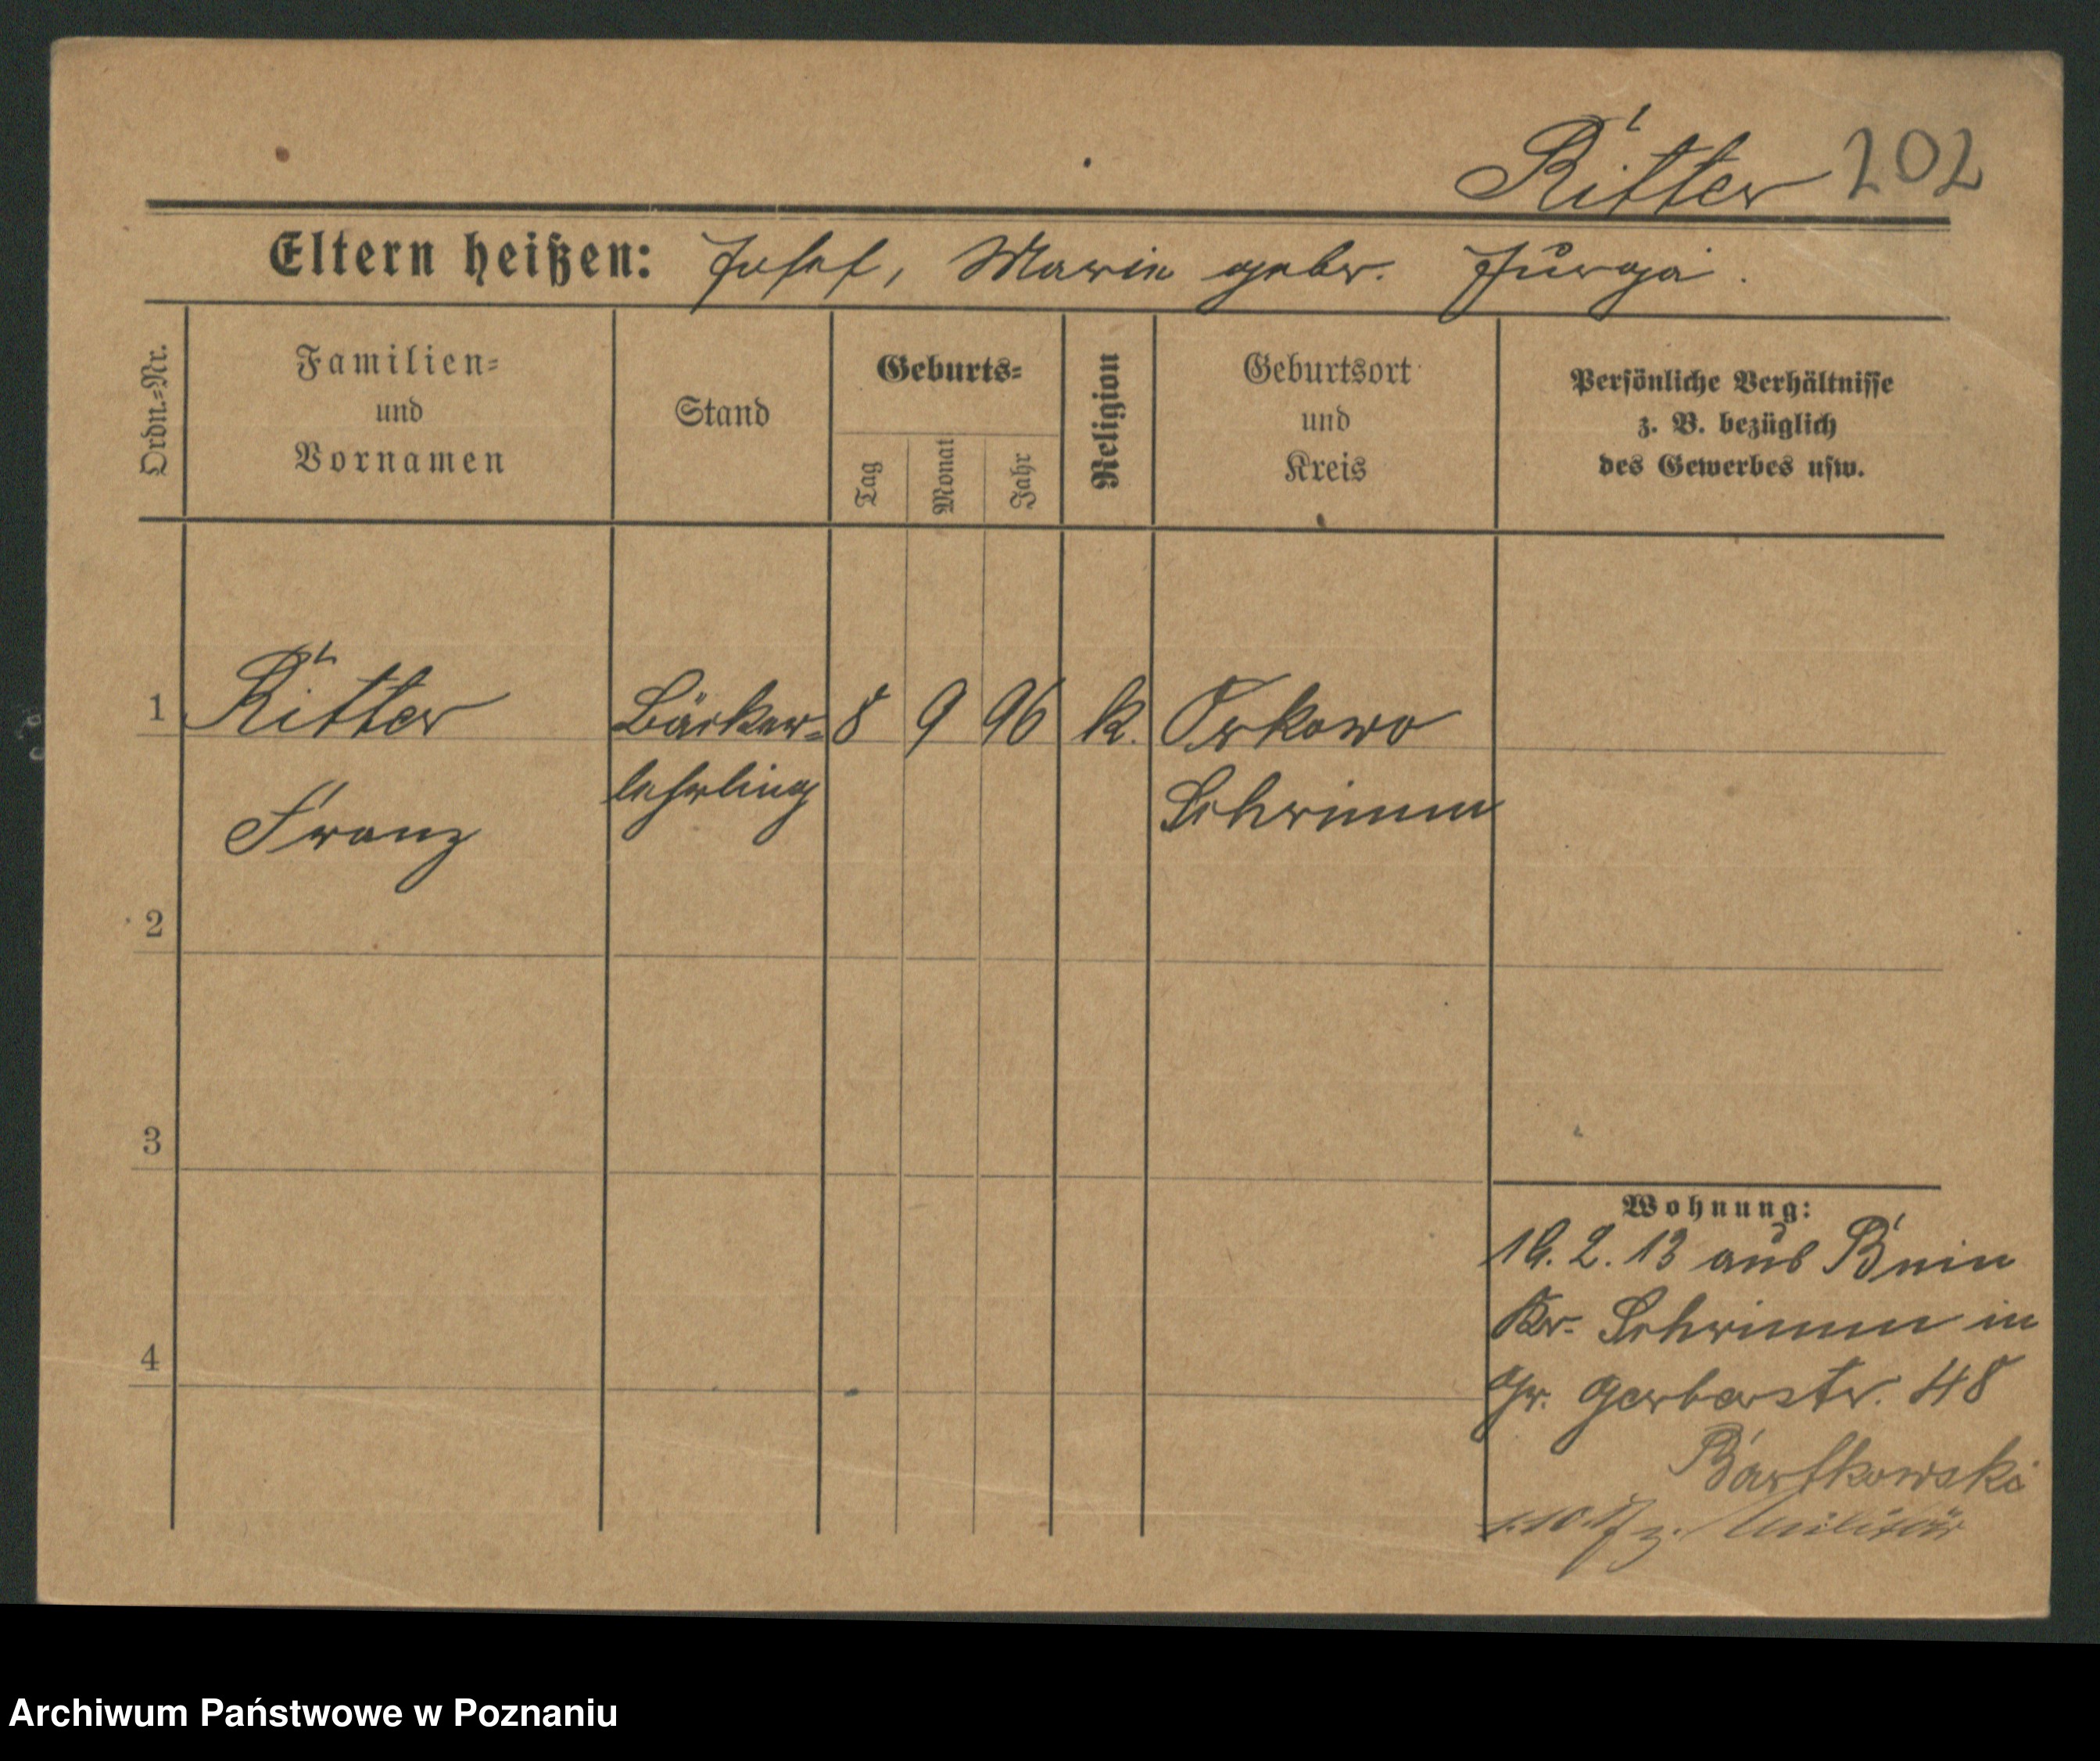 Ritter 202
Eltern heißen: Josef, Marie gebr. Jurga.
Ordn.-Nr.
Familien-
und
Vornamen
Stand
Geburts-
Tag
Monat
Jahr
Religion
Geburtsort
und
Kreis
Persönliche Verhältnisse
z. B. bezüglich
des Gewerbes usw.
1 Ritter Bäcker- 8 9 96 k. Orkowo
lehrling Schrimm
Franz
2
3
4
Wohnung:
16.2.13 aus Bnin
Kr. Schrimm in
Gr. Gerberstr. 48
Bartkowski
z. Militär
Archiwum Państwowe w Poznaniu